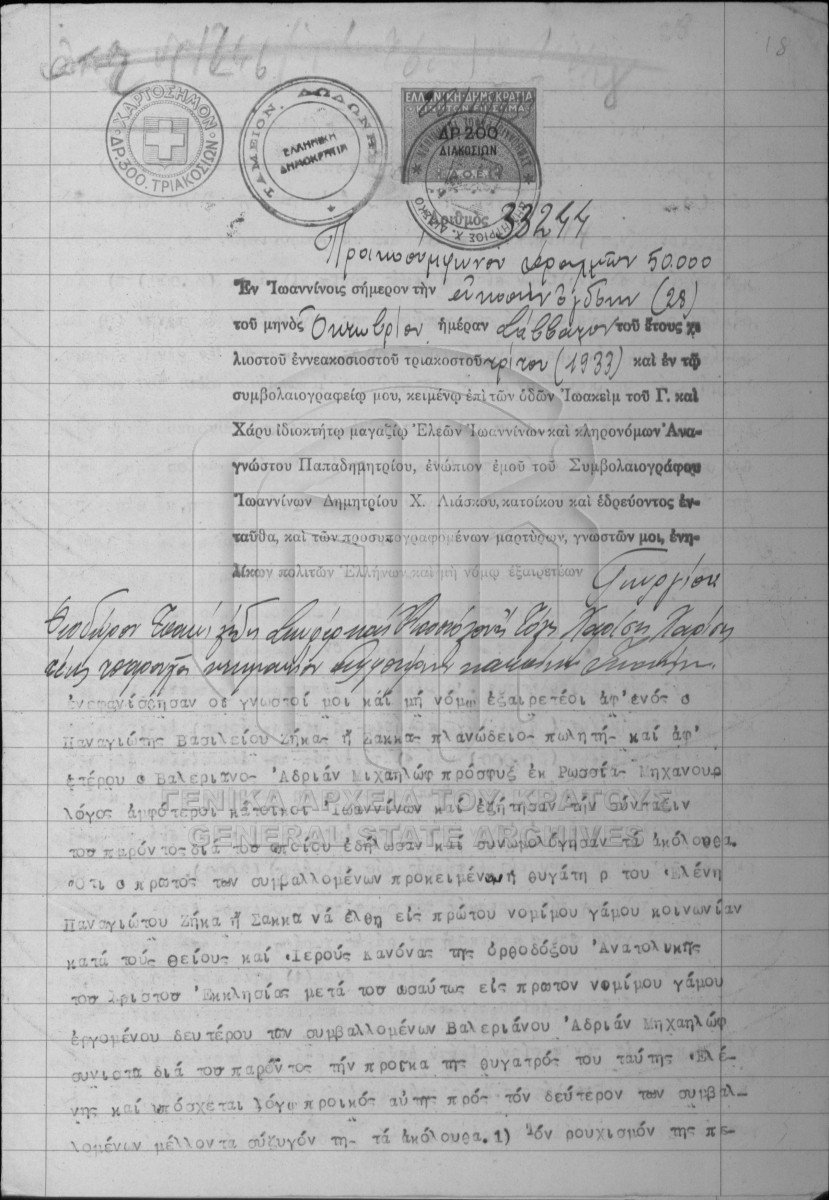 18
ΧΑΡΤΟΣΗΜΟΝ
ΔΡ.300. ΤΡΙΑΚΟΣΙΩΝ
ΤΑΜΕΙΟΝ. ΔΩΔΩΝΗΣ
ΕΛΛΗΝΙΚΗ
ΔΗΜΟΚΡΑΤΙΑ
ΕΛΛΗΝΙΚΗ ΔΗΜΟΚΡΑΤΙΑ
ΔΡ 200
ΔΙΑΚΟΣΙΩΝ
Ἀριθμὸς 33244
Προικοσύμφωνον δραχμῶν 50.000
Ἐν Ἰωαννίνοις σήμερον τὴν εἰκοστὴν ὀγδόην (28)
τοῦ μηνὸς Ὀκτωβρίου ἡμέραν Σάββατον τοῦ ἔτους χι-
λιοστοῦ ἐννεακοσιοστοῦ τριακοστοῦ τρίτου (1933) καὶ ἐν τῷ
συμβολαιογραφείῳ μου, κειμένῳ ἐπὶ τῶν ὁδῶν Ἰωακεὶμ τοῦ Γ. καὶ
Χάρυ ἰδιοκτήτῳ μαγαζίῳ Ἐλεῶν Ἰωαννίνων καὶ κληρονόμων Ἀνα-
γνώστου Παπαδημητρίου, ἐνώπιον ἐμοῦ τοῦ Συμβολαιογράφου
Ἰωαννίνων Δημητρίου Χ. Λιάσκου, κατοίκου καὶ ἑδρεύοντος ἐν-
ταῦθα, καὶ τῶν προσυπογραφομένων μαρτύρων, γνωστῶν μοι, ἐνη-
λίκων πολιτῶν Ἑλλήνων καὶ μὴ νόμῳ ἐξαιρετέων Γεωργίου
Θεοδώρου
ἐνεφανίσθησαν οἱ γνωστοί μοι καί μή νόμῳ ἐξαιρετέοι ἀφ'ἑνός ὁ
Παναγιώτης Βασιλείου Ζήκας ἤ Σακκας πλανώδειος πωλητής καί ἀφ'
ἑτέρου ὁ Βαλεριανος Ἀδριάν Μιχαηλώφ πρόσφυξ ἐκ Ρωσσίας Μηχανουρ
λόγος ἀμφότεροι κάτοικοι Ἰωαννίνων καί ἐζήτησαν τήν σύνταξιν
ΓΕΝΙΚΑ ΑΡΧΕΙΑ ΤΟΥ ΚΡΑΤΟΥΣ
GENERAL STATE ARCHIVES
του παρόντος διά του ὁποίου ἐδήλωσαν καί συνωμολόγησαν τά ἀκόλουθα.
Ὅτι ὁ πρῶτος των συμβαλλομένων προκειμένου ἡ θυγάτη ρ του Ἑλένη
Παναγιώτου Ζήκα ἤ Σακκα νά ἔλθη εἰς πρώτου νομίμου γάμου κοινωνίαν
κατά τούς θείους καί Ἱερούς Κανόνας της ὀρθοδόξου Ἀνατολικῆς
του Χριστου Ἐκκλησίας μετά του ὡσαύτως εἰς πρωτον νομίμου γάμου
ἐρχομένου δευτέρου των συμβαλλομένων Βαλεριάνου Ἀδριάν Μηχαηλώφ
συνιστα διά του παρόντος τήν προικα της θυγατρός του ταύτης Ἑλέ-
νης καί ὑπόσχεται λόγω προικός αὐτης πρός τόν δεύτερον των συμβαλ-
λομένων μέλλοντα σύζυγόν της τά ἀκόλουθα.1) Τόν ρουχισμόν της πε-